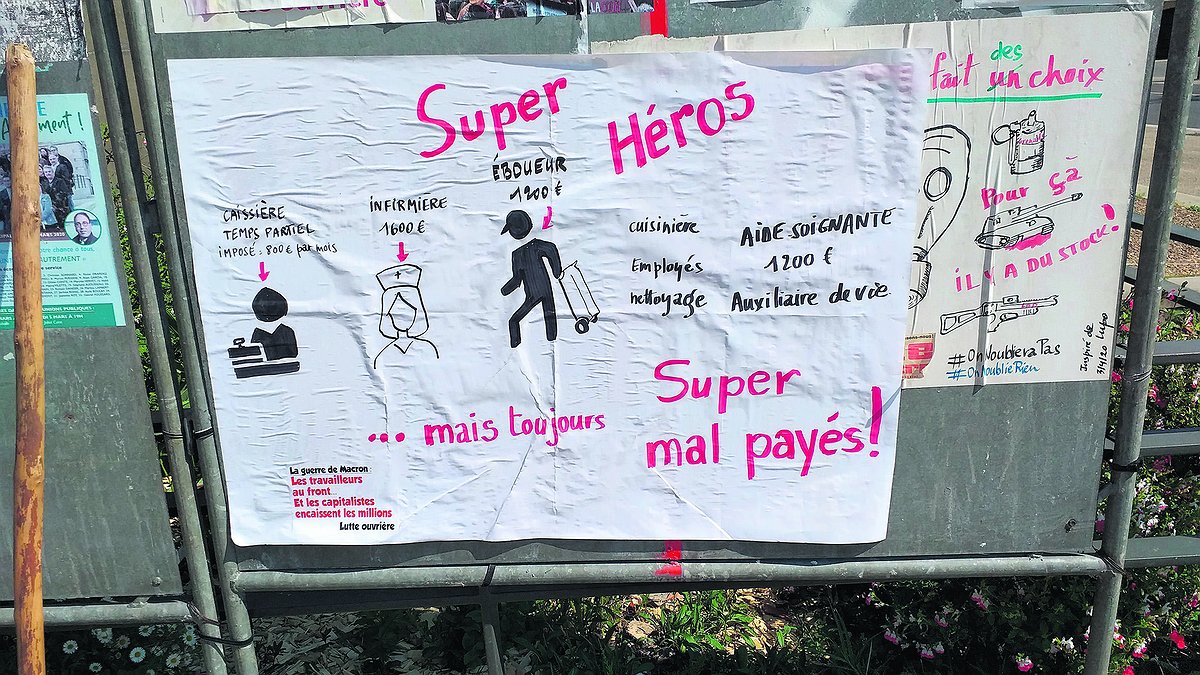 Super
Héros
CAISSIÈRE
TEMPS PARTIEL
IMPOSÉ : 800€ par mois
iNFIRMIÈRE
1600 €
ÉBOUEUR
1200 €
cuisinière
Employés
nettoyage
AIDE-SOIGNANTE
1200 €
Auxiliaire de vie
... mais toujours
Super
mal payés!
La guerre de Macron :
Les travailleurs
au front...
Et les capitalistes
encaissent les millions
Lutte ouvrière
des
fait un choix
Pour çà
iL Y A DU STOCK!
#OnNoubliera Pas
#OnNoublie Rien
Inspiré de
3/4/20 Lupo